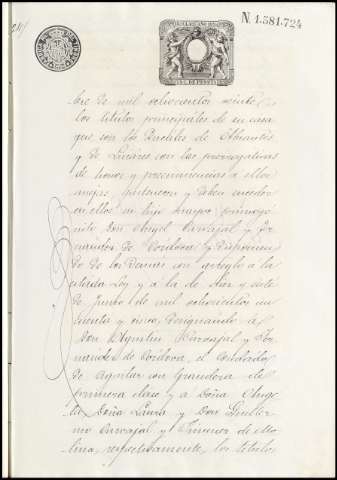 N. 1.581.724
bre de mil ochocientos veinte
los titulos principales de su casa
que son los Ducales de Abrantes
y de Linares con las prerrogativas
de honor y preeminencias a ellos
anejas, pertenecen y deben suceder
en ellos su hijo mayor primogé
nito Don Angel Carvajal y Fer
nandez de Cordova y
de los demas con arreglo a la
citada Ley y á la de diez y siete
de Junio de mil ochocientos cin
cuenta y cinco, designando á
Don Agustin Carvajal y Fer
nandez de Cordova, el Condado
de Aguilar con Grandeza de
primera clase y a Doña Ange
la, Doña Laura y Don Guiller
mo Carvajal y Jimenez de Mo
lina, respectivamente, los titulos